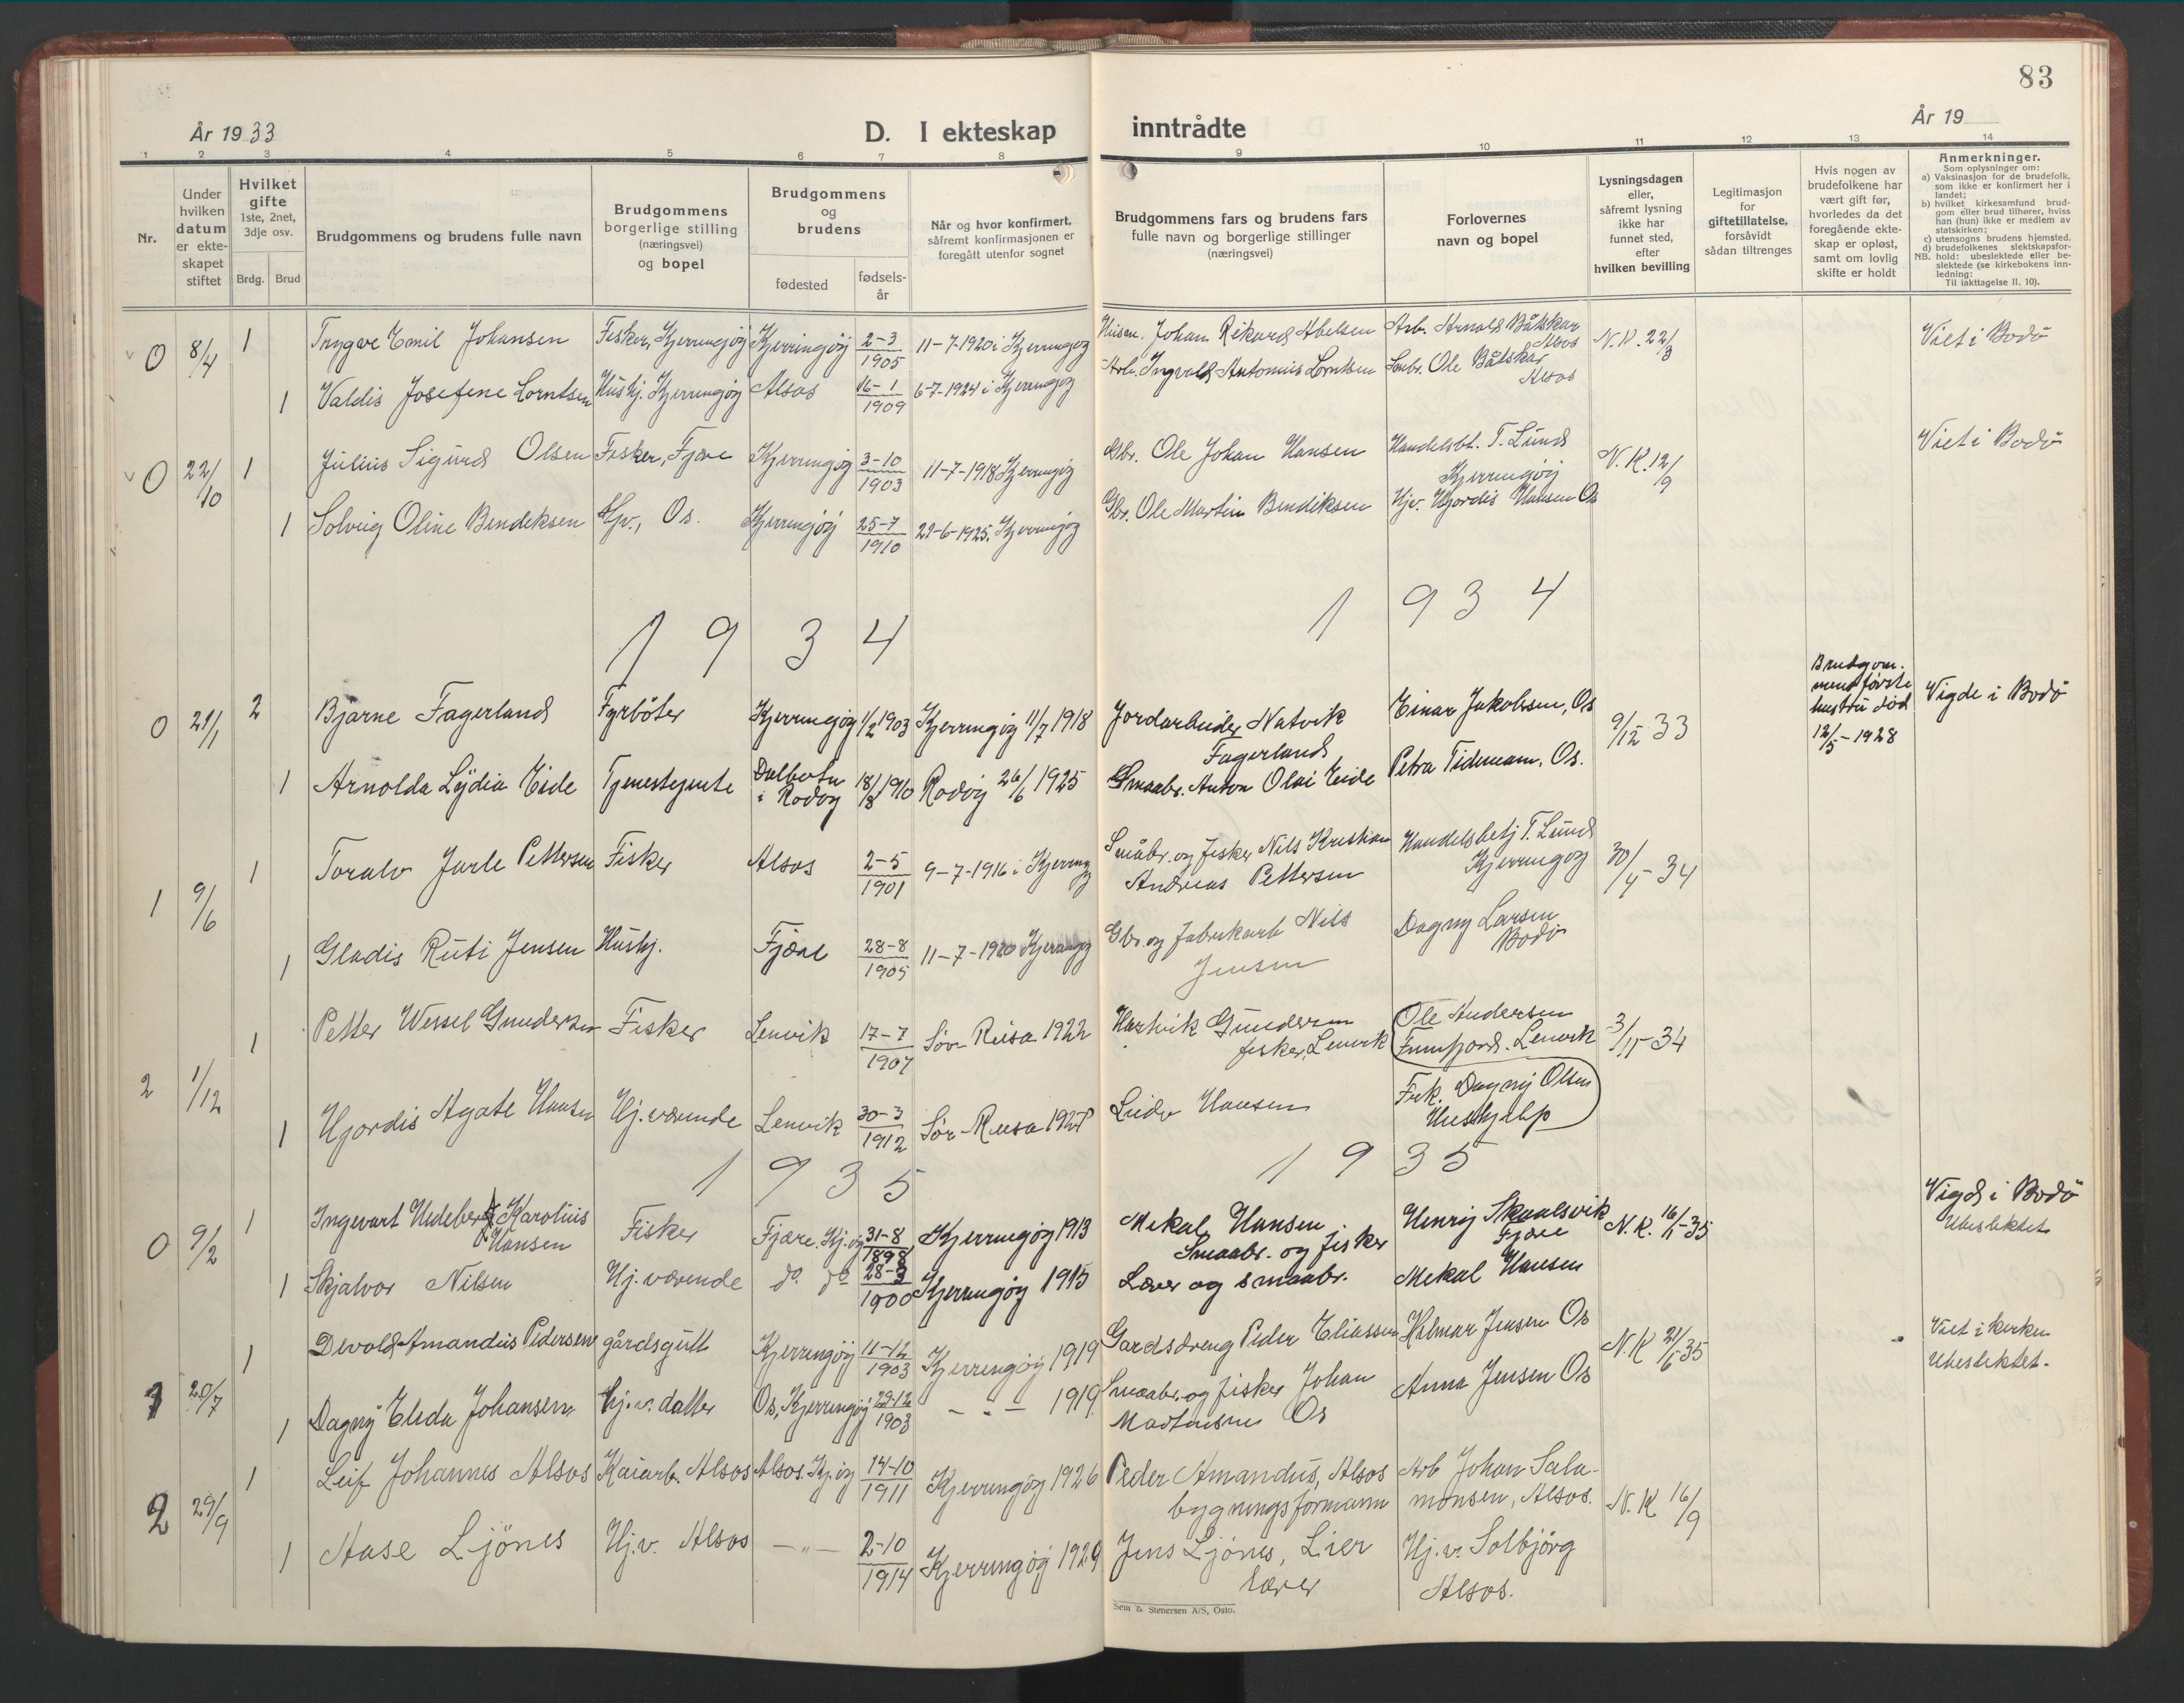 83
År 1933
D. I ekteskap
inntrådte
År 19
1 2 3 4 5 6 7 8 9 10 11 12 13 14
Nr.
Under
hvilken
datum
er ekte-
skapet
stiftet
Hvilket
gifte
1ste, 2net,
3dje osv.
Brdg. Brud
Brudgommens og brudens fulle navn
Brudgommens
borgerlige stilling
(næringsvei)
og bopel
Brudgommens
og
brudens
fødested
fødsels-
år
Når og hvor konfirmert,
såfremt konfirmasjonen er
foregått utenfor sognet
Brudgommens fars og brudens fars
fulle navn og borgerlige stillinger
(næringsvei)
Forlovernes
navn og bopel
Lysningsdagen
eller,
såfremt lysning
ikke har
funnet sted,
efter
hvilken bevilling
Legitimasjon
for
giftetillatelse,
forsåvidt
sådan tiltrenges
Hvis nogen av
brudefolkene har
vært gift før,
hvorledes da det
foregående ekte-
skap er opløst,
samt om lovlig
skifte er holdt
Anmerkninger.
Som oplysninger om:
a) Vaksinasjon for de brudefolk,
som ikke er konfirmert her i
landet;
b) hvilket kirkesamfund brud-
gom eller brud tilhører, hviss
han (hun) ikke er medlem av
statskirken;
c) utensogns brudens hjemsted.
d) brudefolkenes slektskapsfor-
NB. hold: ubeslektede eller be-
slektede (se kirkebokens inn-
ledning:
Til iakttagelse II. 10).
0 8/4 1 Trygve Emil Johansen Fisker, Kjerringöy Kjerringöy 2-3 1905 11-7-1920 i Kjerringöy Johan Rikard Abelsen Arb. Arnold Båtskar Alsos N.K. 22/3 Viet i Bodö
1 Valdis Josefine Lorntsen Hushj. Kjerringöy Alsos 16-1 1909 6-7-1924 i Kjerringöy Arb. Ingvald Antonius Lorntsen Ole Båtskar Alsos
0 22/10 1 Julius Sigurd Olsen Fisker, Fjære Kjerringöy 3-10 1903 11-7-1918 Kjerringöy Gbr. Ole Johan Hansen Handelsbt. T. Lund Kjerringöy N.K. 12/9 Viet i Bodö
1 Solveig Oline Bendiksen Hjv., Os. Kjerringöy 25-7 1910 21-6-1925. Kjerringöy Gbr. Ole Martin Bendiksen Hjv. Hjordis Hansen Os
1934 1934
0 21/1 2 Bjarne Fagerland Fyrböter Kjerringöy 1/2 1903 Kjerringöy 11/7 1918 Jordarbeider Natvik Fagerland Einar Jakobsen, Os 9/12 33 Brudgom-
mens første
hustru död
12/5-1928 Vigde i Bodö
1 Arnolda Lydia Eide Tjenestejente Dalbotn i Rodöy 18/8 1910 Rodöy 26/6 1925 Smaabr. Anton Olai Eide Petra Tidemann, Os.
1 9/6 1 Toralv Jarle Pettersen Fisker Alsos 2-5 1901 9-7-1916 i Kjerringöy Småbr. og fisker Nils Kristian Andreas Pettersen Handelsbetj T. Lund Kjerringöy 30/4-34
1 Gladis Ruti Jensen Hushj. Fjære 28-8 1905 11-7-1920 Kjerringöy Gbr. og fabrikarb Nils Jensen Dagny Larsen Bodö
2 1/12 1 Petter Wessel Gundersen Fisker Lenvik 17-7 1907 Sör-Reisa 1922 Hartvik Gundersen fisker, Lenvik Ole Andersen Finnfjord. Lenvik 3/11-34
1 Hjordis Agate Hansen Hj. værende Lenvik 30-3 1912 Sör-Reisa 1927 Ludv Hansen Frk. Dagny Olsen Hushjelp
1935 1935
0 9/2 1 Ingvart Hedeberg Karolius Hansen Fisker Fjære. Kj.öy 31-8 1898 Kjerringöy 1913 Mekal Hansen Smaabr. og fisker Henrij Skaalsvik Fjære N.K. 16/1-35 Vigd i Bodö
Ubeslektet
1 Skjalvor Nilsen Hj. værende do. do 28-3 1900 Kjerringöy 1915 Lærer og smaabr. Mekal Hansen
1 20/7 1 Devold Amandus Pedersen gårdsgutt Kjerringöy 11-12 1903 Kjerringöy 1919 Gardsdreng Peder Eliassen Helmar Jensen Os N.K 21/6-35 Viet i kirken
Ubeslektet-
1 Dagny Elida Johansen hj.v. datter Os, Kjerringöy 29-12 1903 - " - 1919 Smaabr. og fisker Johan Martinsen Os Anna Jensen Os
2 29/9 1 Leif Johannes Alsos Kaiarb. Alsos Alsos. Kj.öy 14-10 1911 Kjerringöy 1926 Peder Amandus, Alsos bygningsformann Arb Johan Sala-
monsen, Alsos. N.K 16/9
1 Aase Ljönes Hj.v. Alsos - " - 2-10 1914 Kjerringöy 1929 Jens Ljönes, Lier lærer Hj.v. Solbjörg Alsos.
Sem & Stenersen A/S, Oslo.